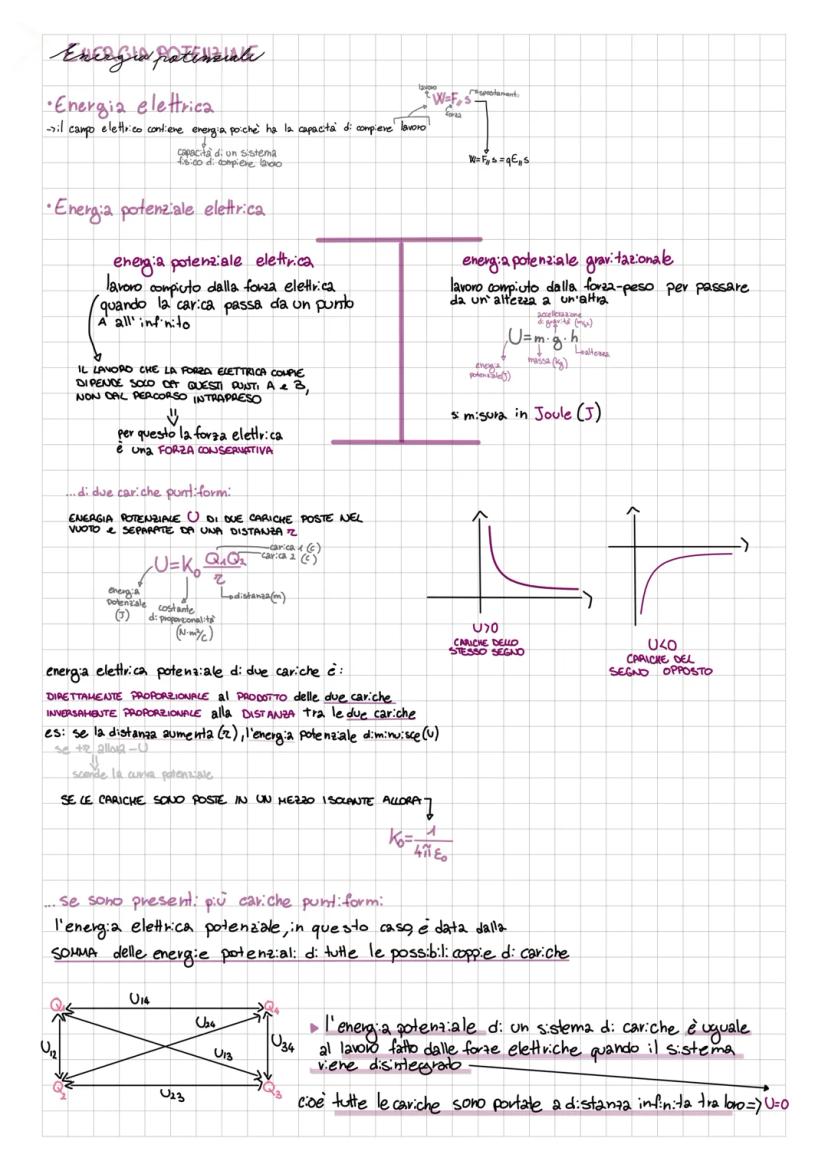 Energia potenziale
lavoro
W=F∥s
spostamento
forza
•Energia elettrica
→il campo elettrico contiene energia poichè ha la capacità di compiere lavoro
capacità di un sistema
fisico di compiere lavoro
W=F∥s=qE∥s
•Energia potenziale elettrica
energia potenziale elettrica
lavoro compiuto dalla forza elettrica
quando la carica passa da un punto
A all'infinito
IL LAVORO CHE LA FORZA ELETTRICA COMPIE
DIPENDE SOLO DAI QUESTI PUNTI A e B,
NON DAL PERCORSO INTRAPRESO
⇓
per questo la forza elettrica
è una FORZA CONSERVATIVA
energia potenziale gravitazionale
lavoro compiuto dalla forza-peso per passare
da un'altezza a un'altra
accellerazione
di gravità (m/s²)
U=m·g·h
altezza
energia
potenziale(J)
massa(kg)
si misura in Joule (J)
...di due cariche puntiformi
ENERGIA POTENZIALE U DI DUE CARICHE POSTE NEL
VUOTO e SEPARATE DA UNA DISTANZA r
U=K₀ Q₁Q₂/r
carica 1 (C)
carica 2 (C)
distanza(m)
energia
potenziale
(J)
costante
di proporzionalità
(N·m²/C)
U>0
CARICHE DELLO
STESSO SEGNO
U<0
CARICHE DEL
SEGNO OPPOSTO
energia elettrica potenziale di due cariche è:
DIRETTAMENTE PROPORZIONALE al PRODOTTO delle due cariche
INVERSAMENTE PROPORZIONALE alla DISTANZA tra le due cariche
es: se la distanza aumenta(r), l'energia potenziale diminuisce(U)
se +r allora -U
⇓
scende la curva potenziale
SE LE CARICHE SONO POSTE IN UN MEZZO ISOLANTE ALLORA
K₀=1/4πε₀
...se sono presenti più cariche puntiformi
l'energia elettrica potenziale, in questo caso, è data dalla
SOMMA delle energie potenziali di tutte le possibili coppie di cariche
Q₁
U₁₄
Q₄
U₂₄
U₁₂
U₁₃
U₃₄
Q₂
U₂₃
Q₃
▸ l'energia potenziale di un sistema di cariche è uguale
al lavoro fatto dalle forze elettriche quando il sistema
viene disintegrato
cioè tutte le cariche sono portate a distanza infinita tra loro=> U=0